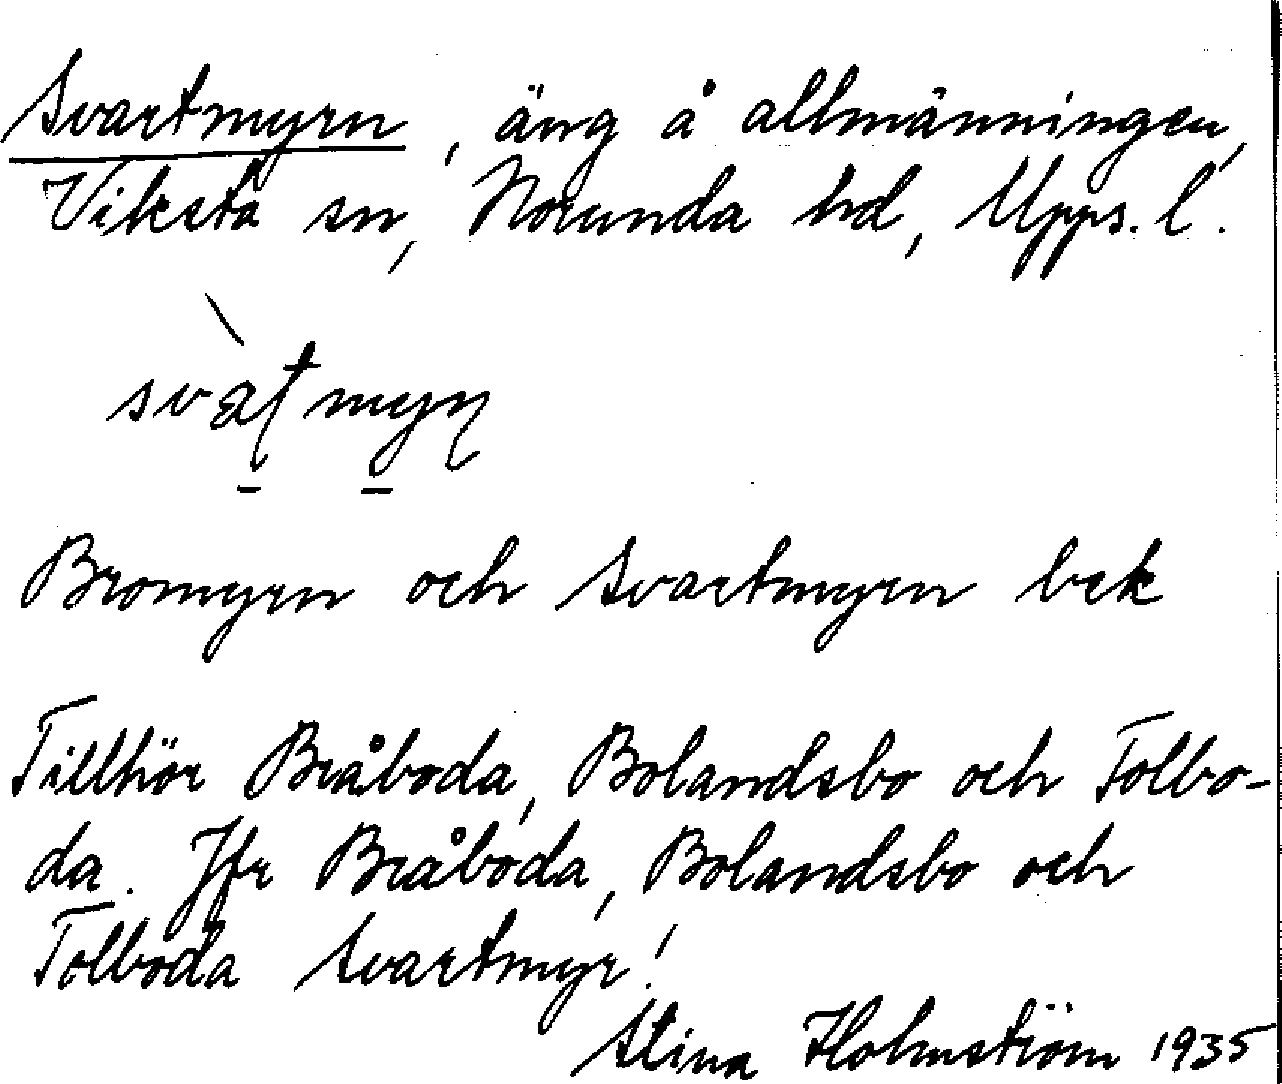 Svartmyrn, äng å allmänningen,
Viksta sn, Norunda hd, Upps. l.
svàʈmyɳ
Bromyrn och Svartmyrn bek
Tillhör Bråboda, Bolandsbo och Tolbo-
da. Jfr Bråboda, Bolandsbo och
Tolboda Svartmyr!
Stina Holmström 1935